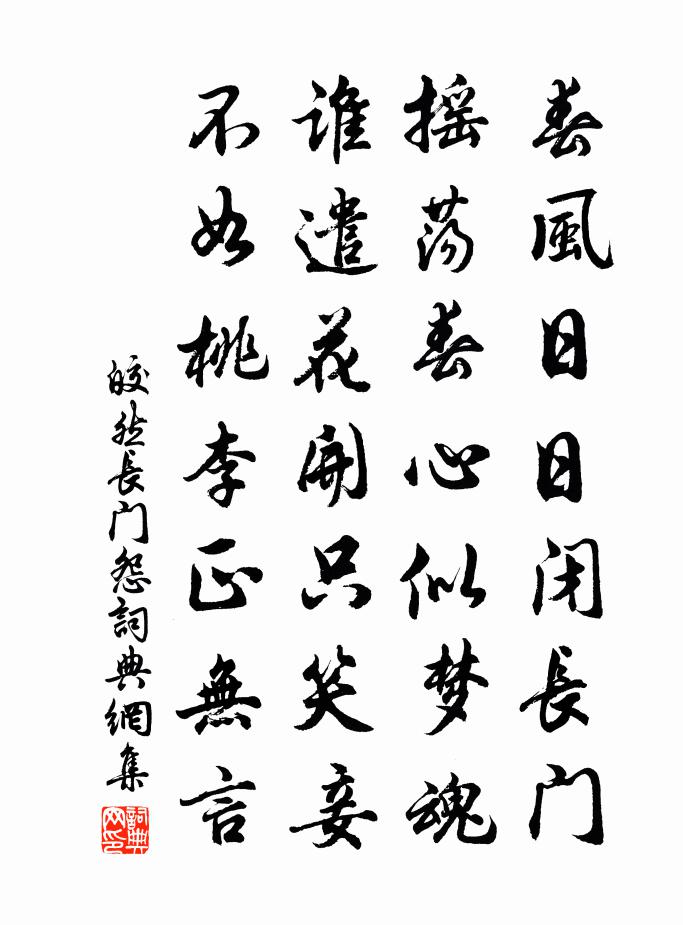 春風日日閉長門
摇荡春心似梦魂
誰遣花開只笑妾
不如桃李正無言
皎然長門怨詞典網集
詞典网印